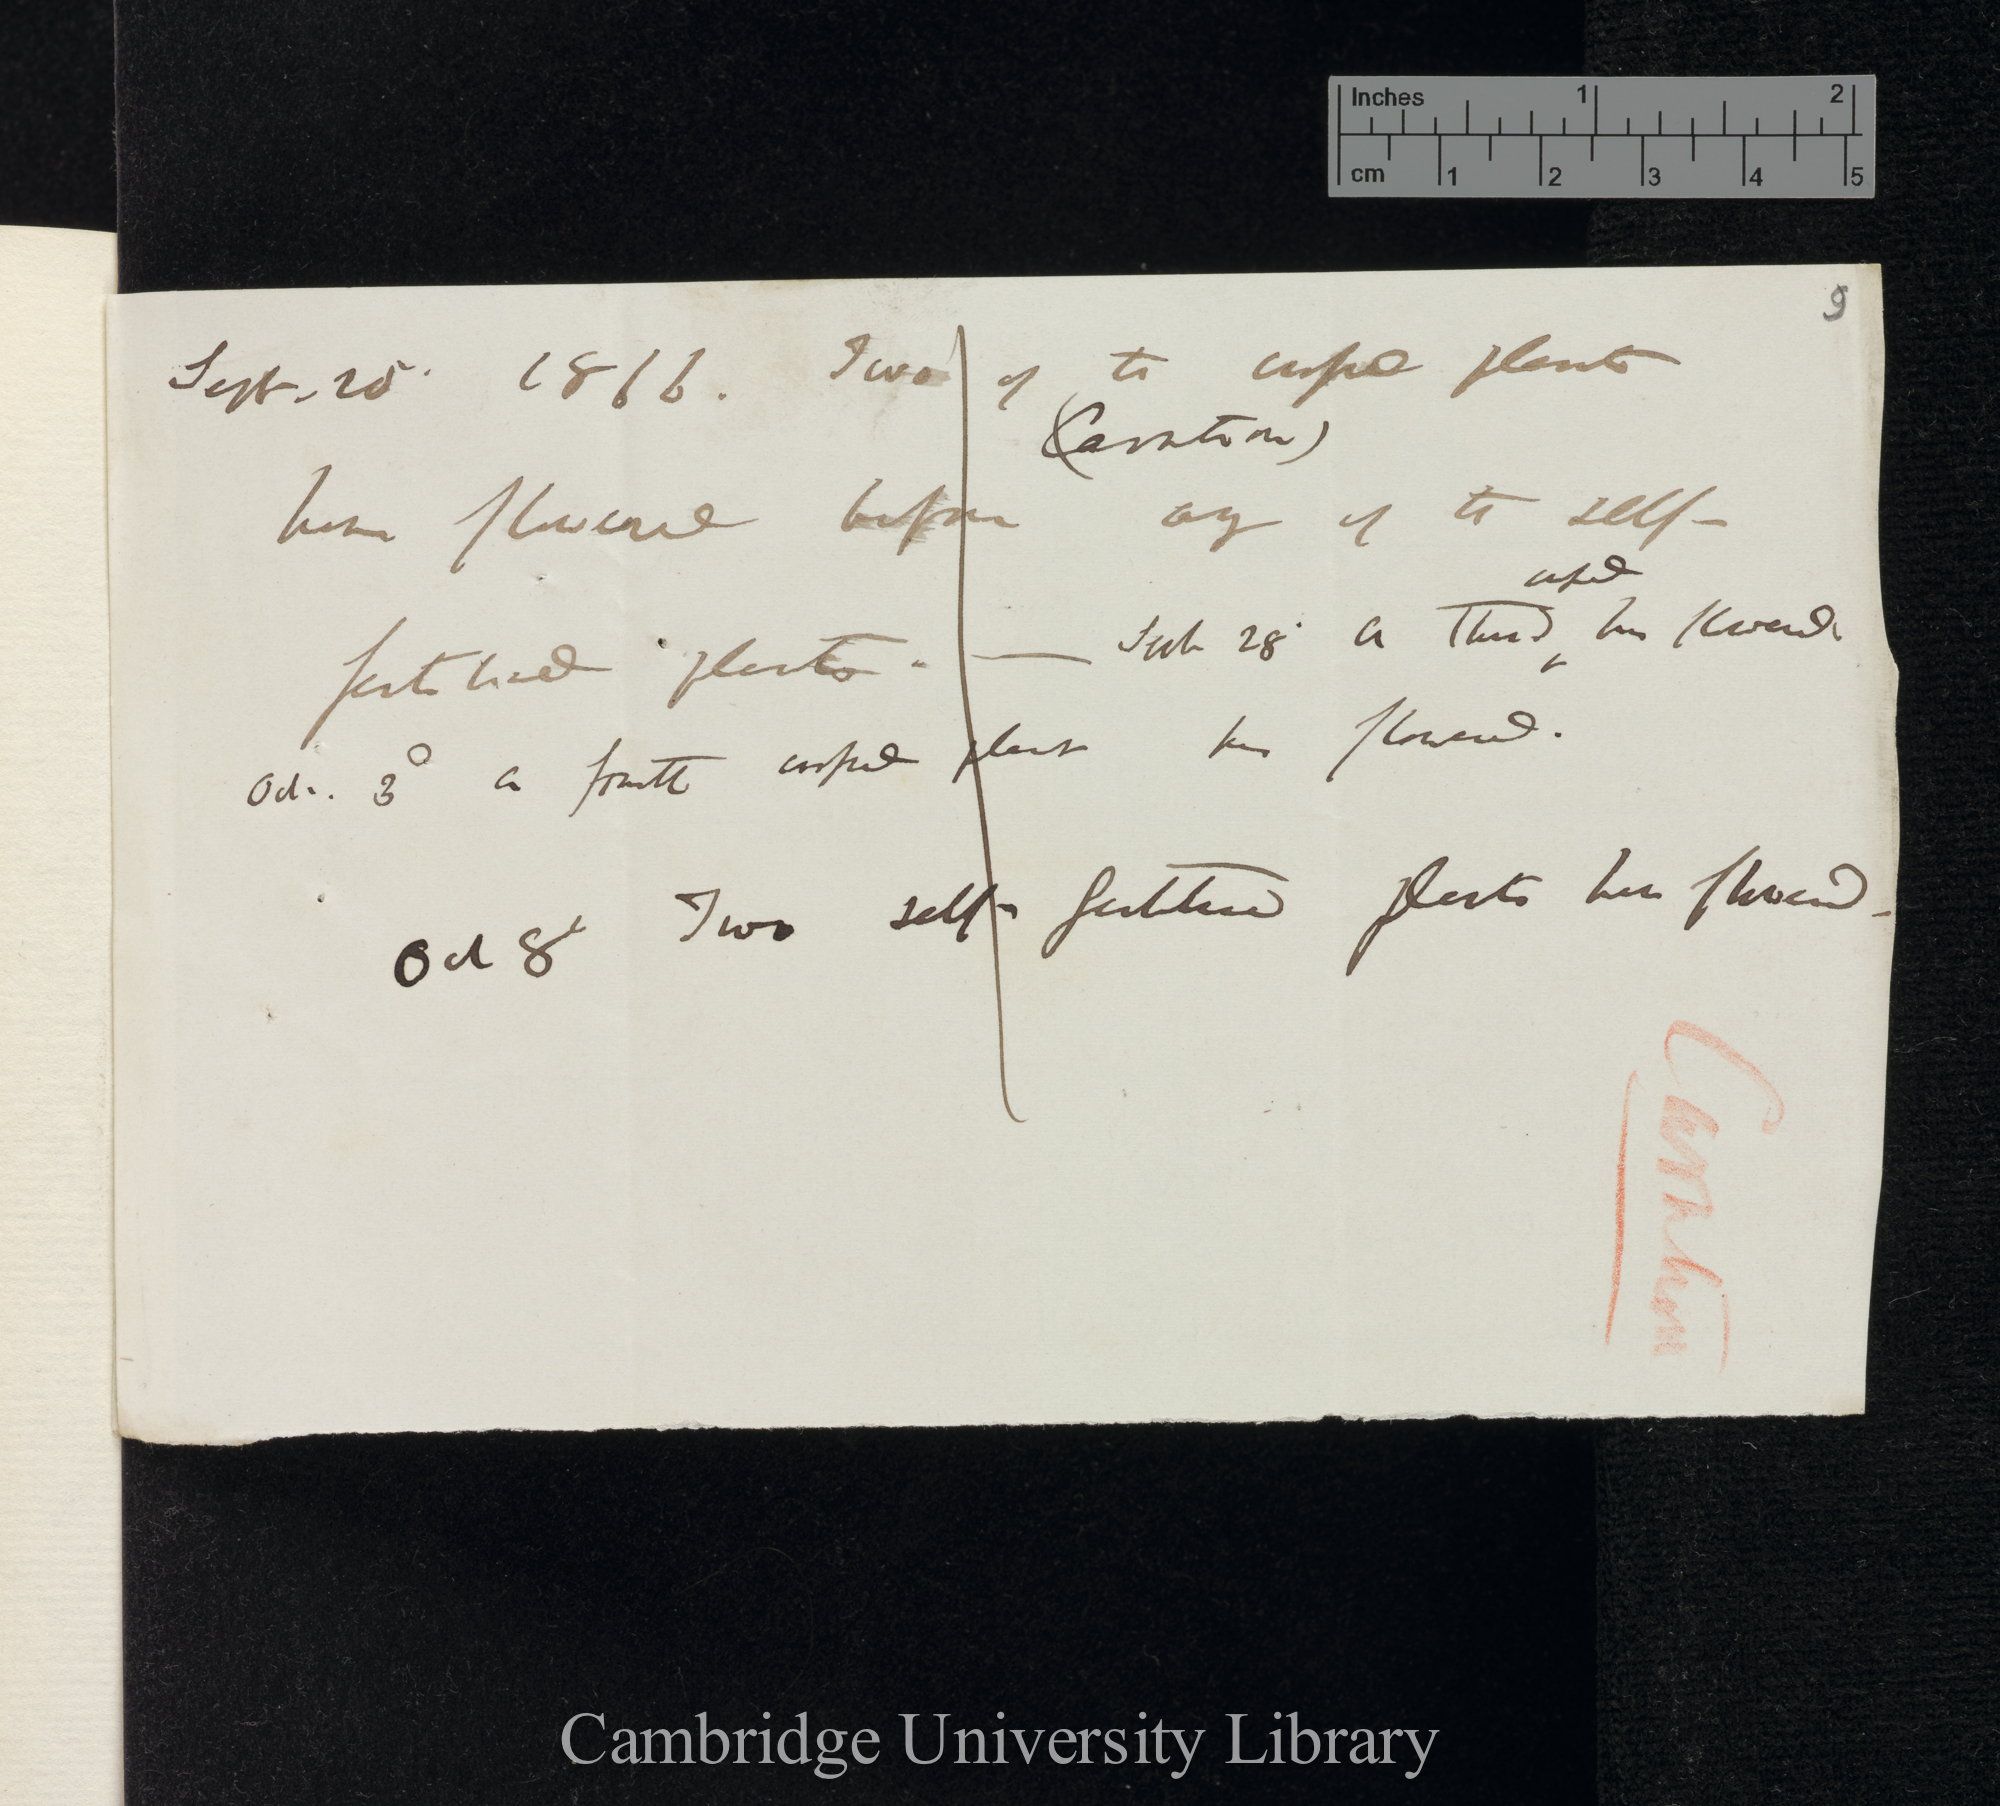 Inches 1 2
cm 1 2 3 4 5
9
Sept. 25. 1866. Two of the crossed plants
(Carnation)
have flowered before any of the self-
crossed
fertilised plants. — Sept 28. a Third has flowered.
Oct. 3d a fourth crossed plant has flowered.
Oct 8th Two self-fertilised plants have flowered.
Carnation
Cambridge University Library